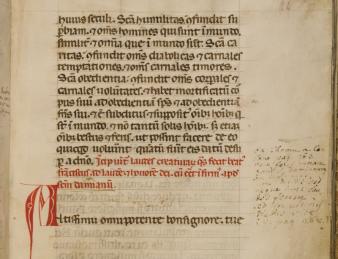 huius seculi. Scã humilitas ꝯfundit su
ꝑbiam. ⁊ om̃s homines qui sunt ĩ mundo.
similit̃ ⁊ om̃ia que ĩ mundo sũt. Scã ca
ritas. ꝯfundit om̃s diabolicas ⁊ carnales
temptationes. ⁊ om̃s carnales timores.
Scã obedientia ꝯfundit om̃s corꝑales ⁊
carnales voluntates. ⁊ habet mortificatũ cor
pus suũ. ad obedientiã sp̃s ⁊ ad obedientiã
fr̃is sui. ⁊ ẽ subditꝰ ⁊ suppositꝰ oĩbꝫ hoĩbꝫ q̃
st̃ ĩ mundo. ⁊ nõ tantũ solis hoĩbꝫ. sꝫ etiã
oĩbꝫ bestiis ⁊ feris. ut possint facere de eo
quicqͥd voluerint quãtũ fuĩt eis datũ de
suꝑ a dño. Incipiũt laudes creaturaꝝ qͣs fecit beatꝰ
franciscꝰ ad laudẽ ⁊ honorẽ dei. cũ eẽt ĩfirmꝰ apud
scm̃ damianũ.
Altissimu onnipotente bonsignore. tue